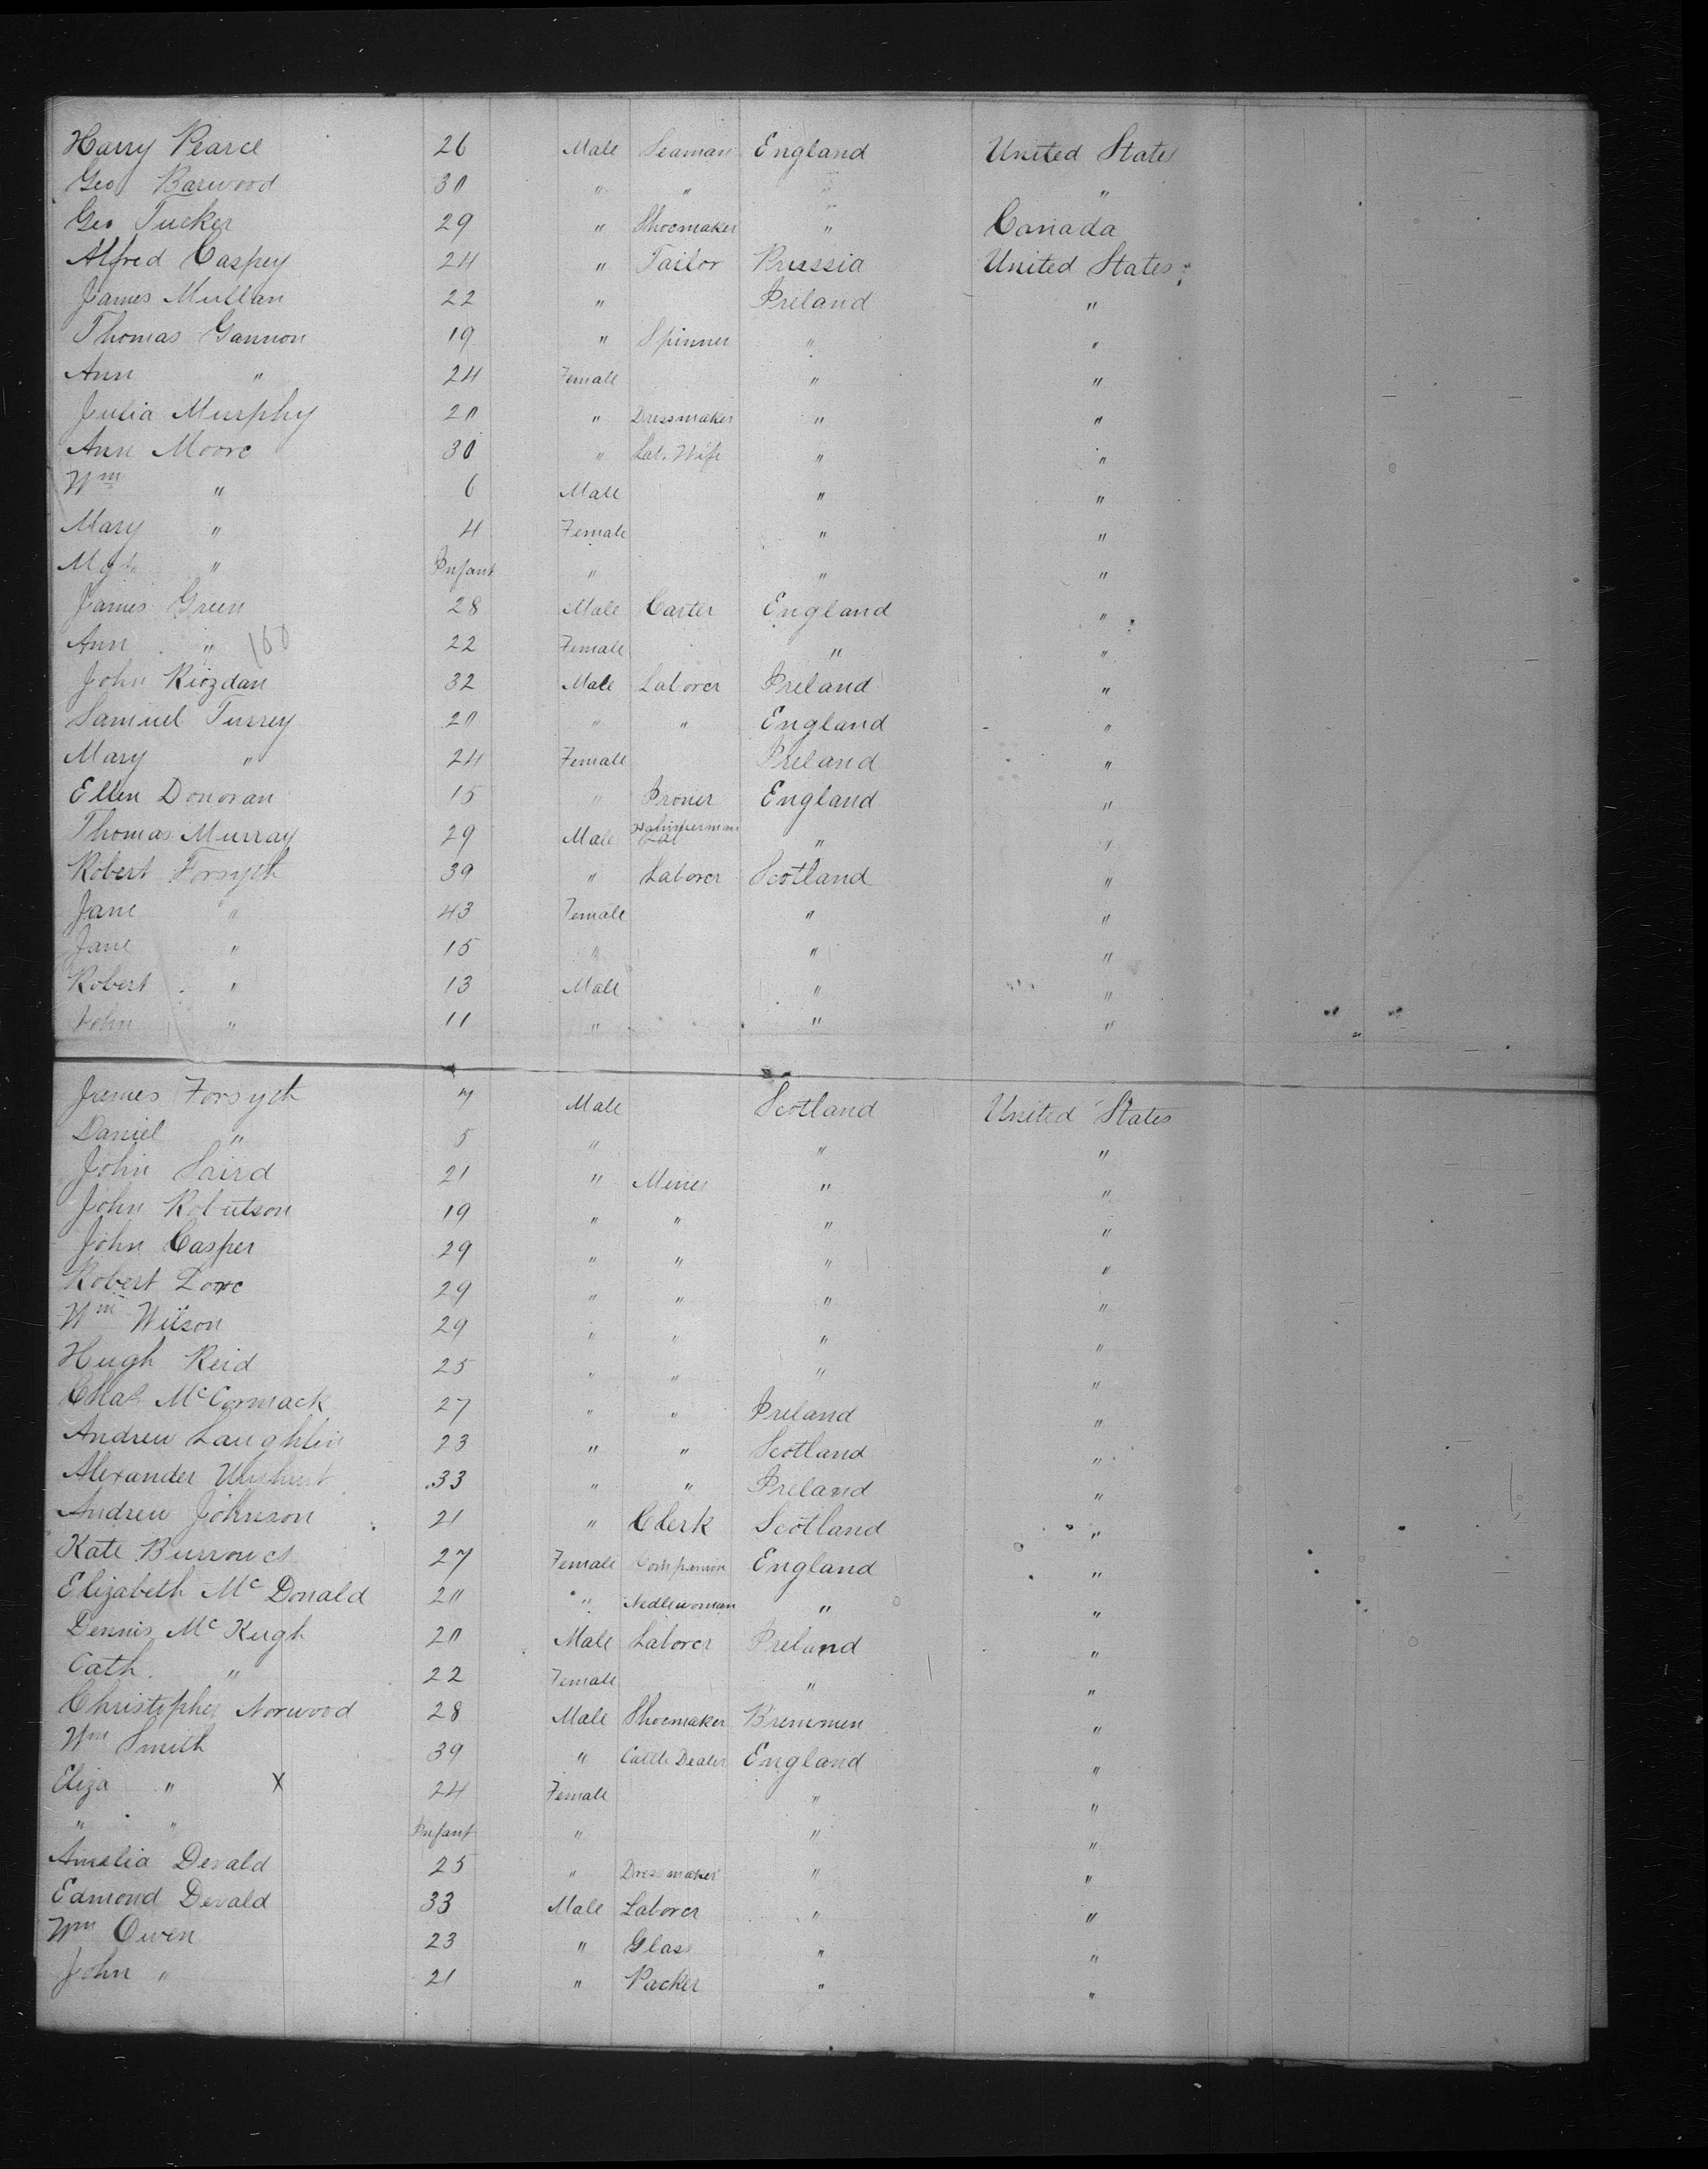 Harry Pearce 26 Male Seaman England United States
Geo Barwood 30 " " " "
Geo Tucker 29 " Shoemaker " Canada
Alfred Caspey 24 " Tailor Prussia United States
James Mullan 22 " Ireland "
Thomas Gannon 19 " Spinner " "
Ann " 24 Female " "
Julia Murphy 20 " Dressmaker " "
Ann Moore 30 " Lab. Wife " "
Wm " 6 Male " "
Mary " 4 Female " "
Mgt " Infant " " "
James Green 28 Male Carter England "
Ann " 100 22 Female " "
John Riozdan 32 Male Laborer Ireland "
Samuel Turrey 20 " " England "
Mary " 24 Female Ireland "
Ellen Donovan 15 " Ironer England "
Thomas Murray 29 Male Lab " "
Robert Forsyth 39 " Laborer Scotland "
Jane " 43 Female " "
Jane " 15 " " "
Robert " 13 Male " "
John " 11 " " "
James Forsyth 7 Male Scotland United States
Daniel " 5 " " "
John Laird 21 " Miner " "
John Robertson 19 " " " "
John Casper 29 " " " "
Robert Love 29 " " " "
Wm Wilson 29 " " " "
Hugh Reid 25 " " " "
Chas McCormack 27 " " Ireland "
Andrew Laughlin 23 " " Scotland "
Alexander 33 " " Ireland "
Andrew Johnson 21 " Clerk Scotland "
Kate Burrowes 27 Female Companion England "
Elizabeth McDonald 20 " Nedlewoman " "
Dennis McKeigh 20 Male Laborer Ireland "
Cath. " 22 Female " "
Christopher Norwood 28 Male Shoemaker Bremmen "
Wm Smith 39 " Cattle Dealer England "
Eliza " X 24 Female " "
" " Infant " " "
Amelia Devald 25 " Dressmaker " "
Edmond Devald 33 Male Laborer " "
Wm Owen 23 " Glass " "
John " 21 " Packer " "